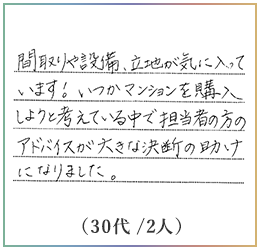 間取りや設備、立地が気に入って
います！いつかマンションを購入
しようと考えている中で担当者の方の
アドバイスが大きな決断の助け
になりました。
（30代 /2人）